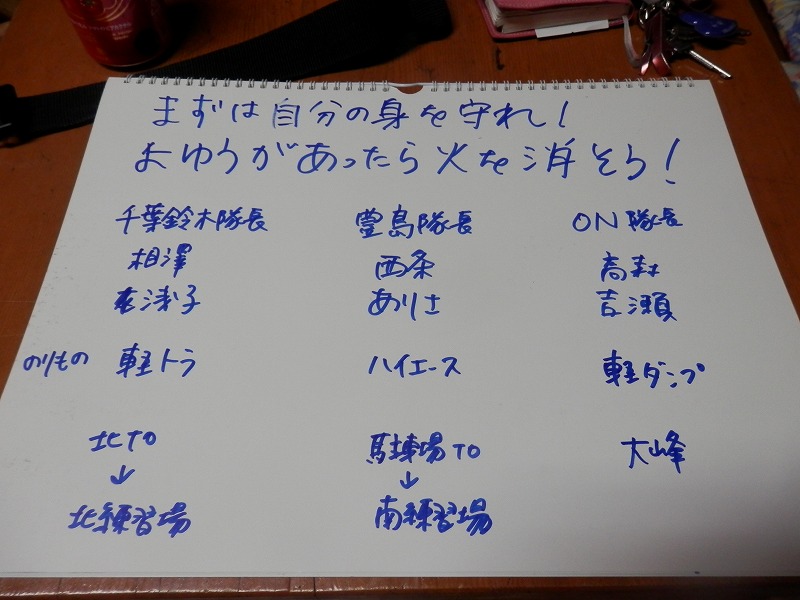 まずは自分の身を守れ!
よゆうがあったら火を消そう!
千葉鈴木隊長 豊島隊長 ON隊長
相澤 西条 高森
浅子 ありさ 吉瀬
のりもの 軽トラ ハイエース 軽ダンプ
北TO 駐車場TO 大峰
↓ ↓
北練習場 南練習場